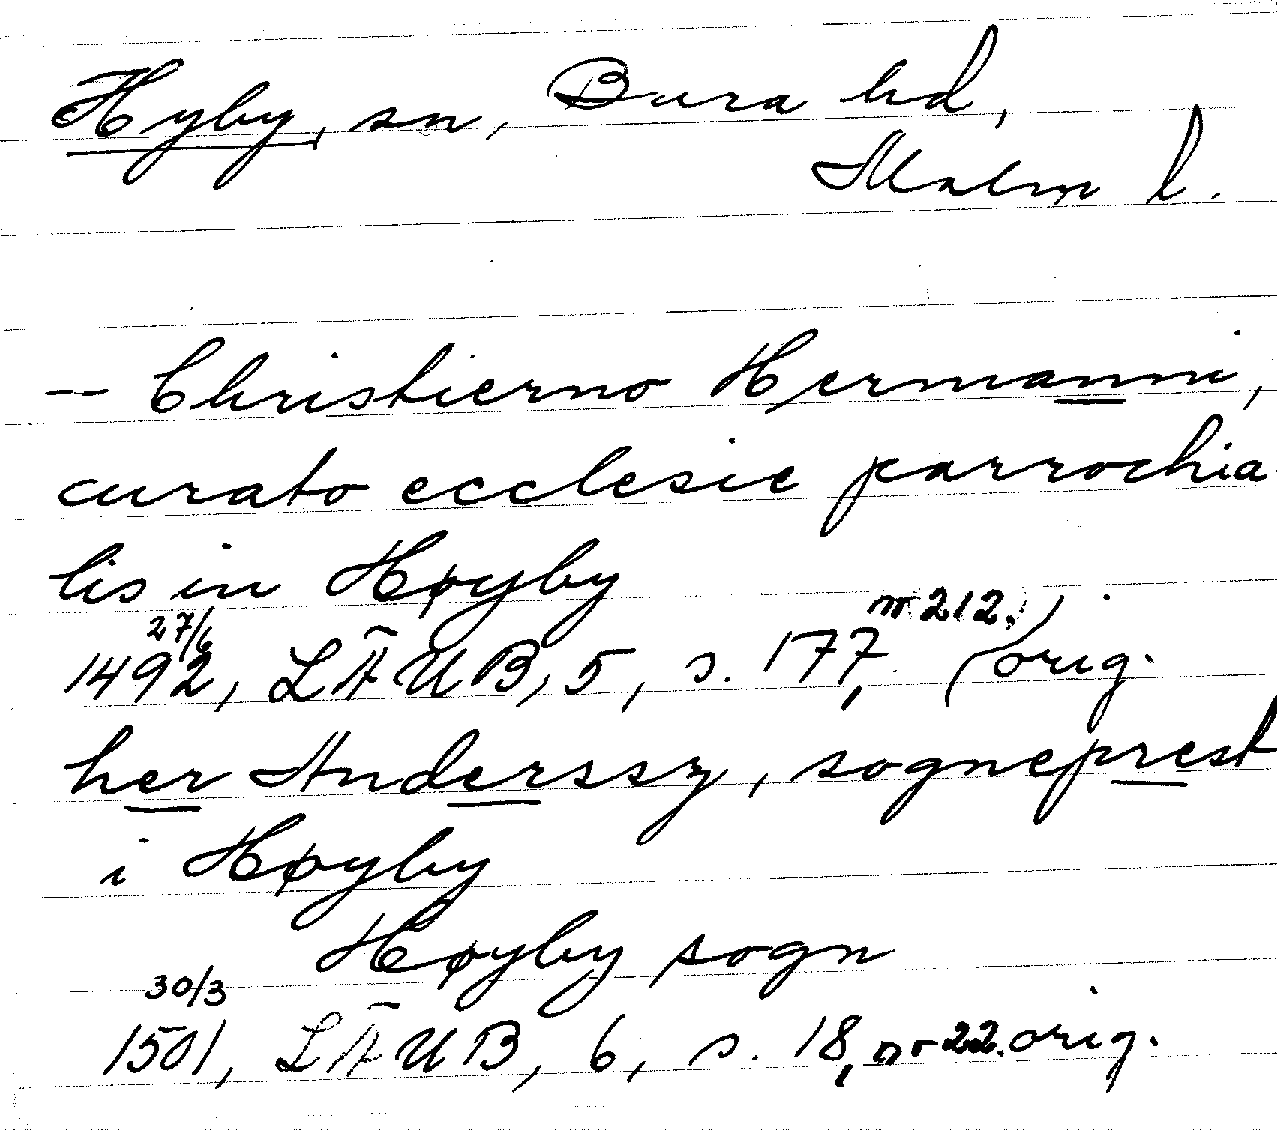 Hyby, sn, Bara hd,
Malm l.
-- Christierno Hermanni,
curato ecclesie parrochia
lis in Høyby
27/6
1492, LÄUB, 5, s. 177, nr 212. (orig.)
her Anderssz, sogneprest
i Høyby
Høyby sogn
30/3
1501, LÄUB, 6, s. 18, nr 22. orig.